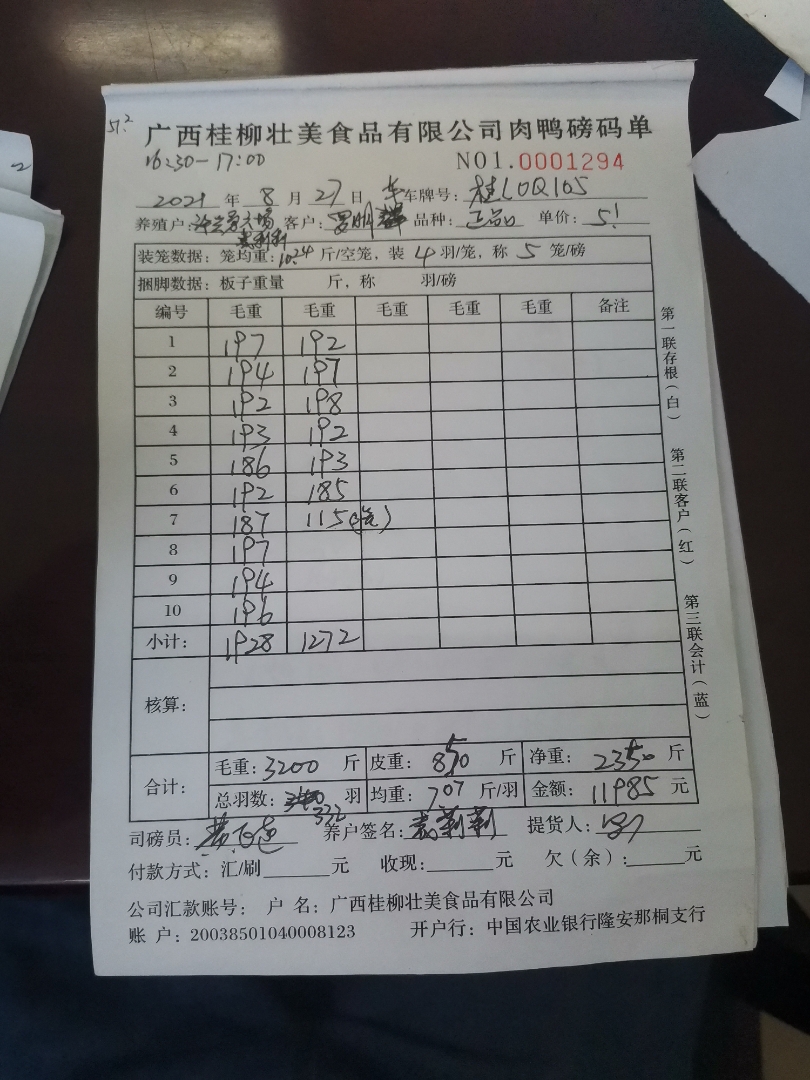 5.1²
广西桂柳壮美食品有限公司肉鸭磅码单
16:30-17:00 NO1.0001294
2021年8月27日 车牌号：桂L0Q105
养殖户： 客户：罗 品种：正品 单价：5.1
装笼数据：笼均重：10.24斤/空笼，装4羽/笼，称5笼/磅
捆脚数据：板子重量 斤，称 羽/磅
编号 毛重 毛重 毛重 毛重 毛重 备注
1 197 192
2 194 197
3 192 198
4 193 192
5 186 193
6 192 185
7 187 115
8 197
9 194
10 196
小计： 1928 1272
核算：
合计： 毛重：3200斤 皮重：850斤 净重：2350斤
总羽数：332羽 均重：7.07斤/羽 金额：11985元
司磅员： 养户签名： 提货人：
付款方式：汇/刷______元 收现：______元 欠（余）：______元
公司汇款账号： 户 名：广西桂柳壮美食品有限公司
账 户：20038501040008123 开户行：中国农业银行隆安那桐支行
第一联存根（白） 第二联客户（红） 第三联会计（蓝）